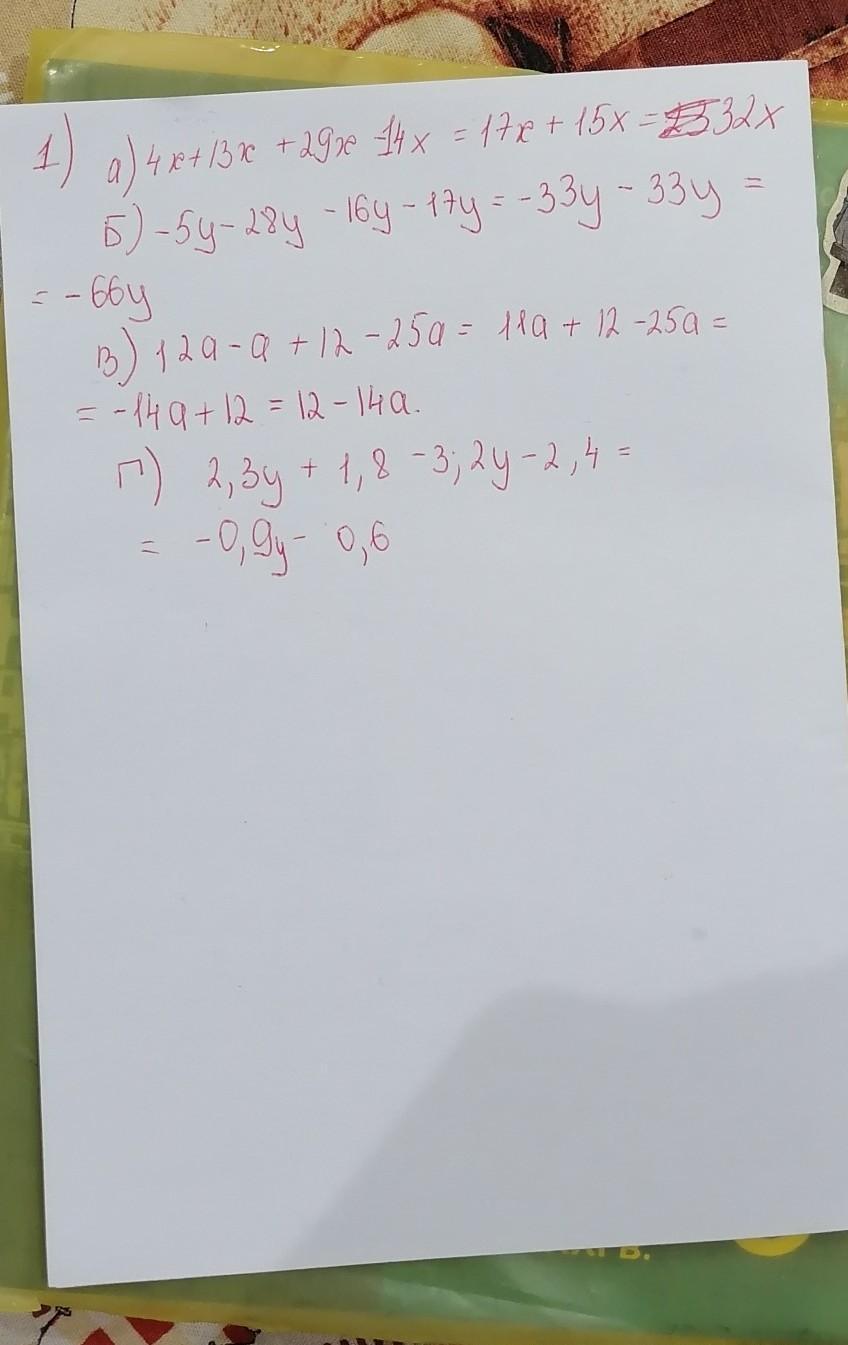 1) а) 4x+13x +29x -14x = 17x + 15x = 32x
Б) -5y-28y -16y-17y = -33y - 33y =
= -66y
В) 12a-a +12 -25a = 11a + 12 -25a =
= -14a+12 = 12-14a.
Г) 2,3y + 1,8 -3,2y-2,4 =
= -0,9y- 0,6
В.